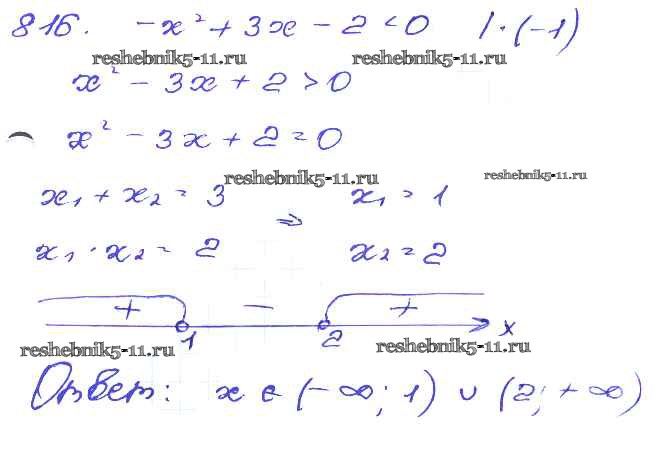 816. -x² + 3x - 2 < 0 / · (-1)
reshebnik5-11.ru reshebnik5-11.ru
x² - 3x + 2 > 0
x² - 3x + 2 = 0
reshebnik5-11.ru reshebnik5-11.ru
x₁ + x₂ = 3 x₁ = 1
⇒
x₁ · x₂ = 2 x₂ = 2
+ - +
1 2 x
reshebnik5-11.ru reshebnik5-11.ru
Ответ: x ∈ (-∞; 1) ∪ (2; +∞)